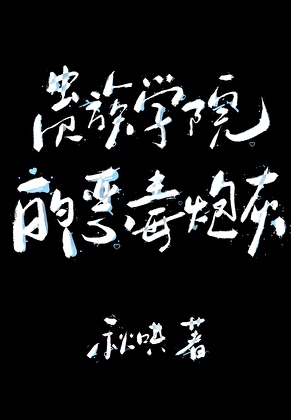 贵族学院
的恶毒炮灰
秋哄 著